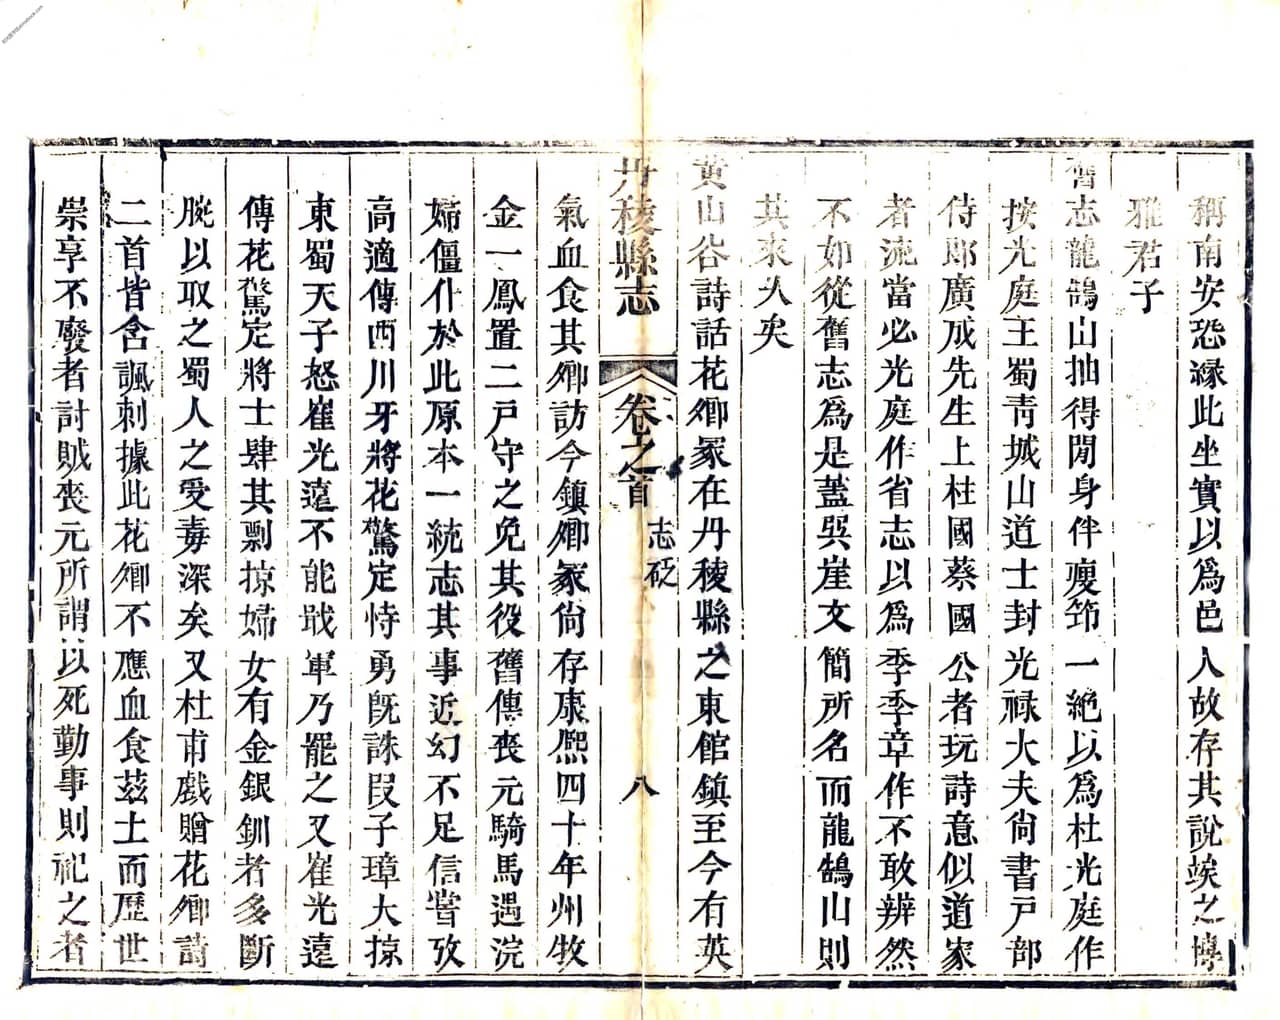 稱南安恐縁此坐實以爲邑人故存其說竢之博
雅君子
舊志龍鵠山抽得閒身伴瘦筇一絶以爲杜光庭作
按光庭主蜀靑城山道士封光禄大夫尙書戸部
侍郎廣成先生上柱國蔡國公者玩詩意似道家
者流當必光庭作省志以爲季季章作不敢辨然
不如從舊志爲是蓋與崖文簡所名而龍鵠山則
其來久矣
黄山谷詩話花卿冢在丹稜縣之東館鎮至今有英
丹稜縣志
卷之首
志砭
八
氣血食其卿訪今鎮卿冢尙存康熈四十年州牧
金一鳳置二戸守之免其役舊傳喪元騎馬遇浣
婦僵仆於此原本一統志其事近幻不足信嘗攷
高適傳西川牙將花驚定恃勇旣誅叚子璋大掠
東蜀天子怒崔光遠不能戢軍乃罷之又崔光遠
傳花驚定將士肆其剽掠婦女有金銀釧者多斷
腕以取之蜀人之受毒深矣又杜甫戲贈花卿詩
二首皆含諷刺據此花卿不應血食茲土而歴世
崇享不廢者討賊喪元所謂以死勤事則祀之者